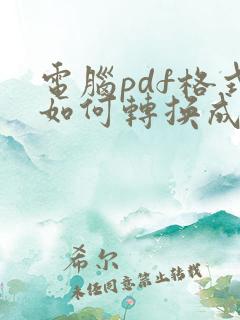 電腦pdf格式
如何轉換成
希尔
未经同意禁止转载